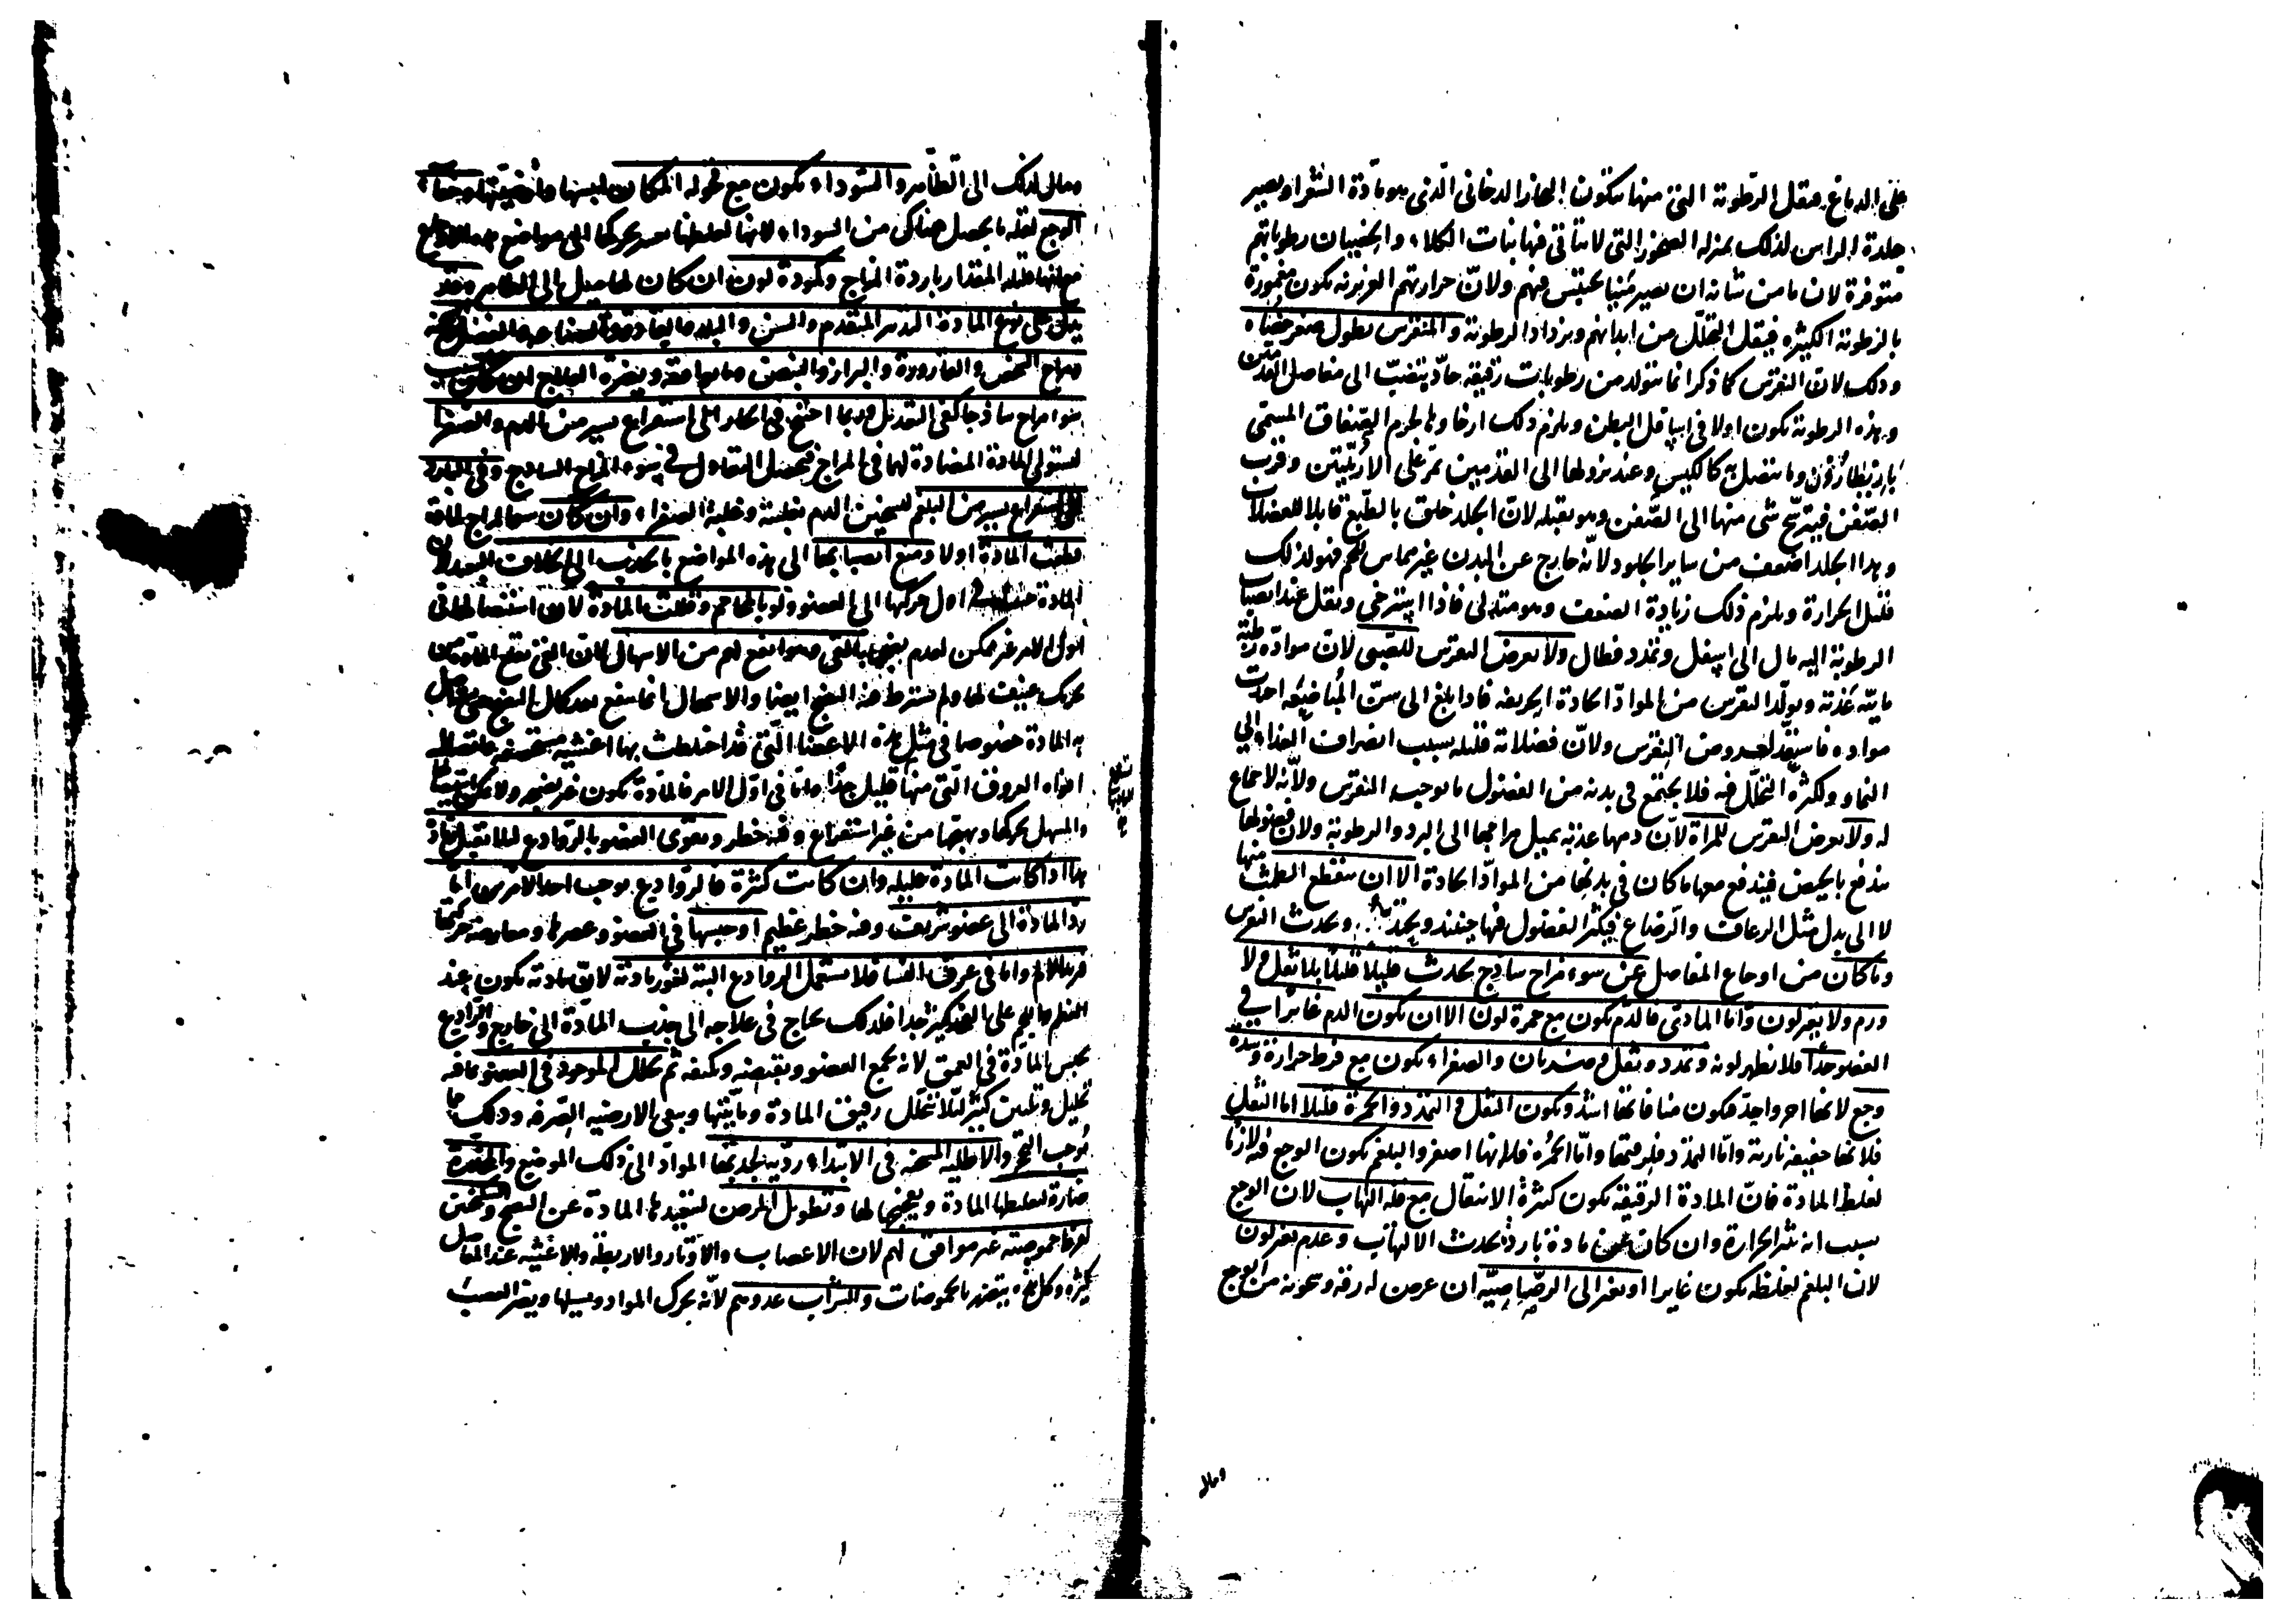 على الدماغ فتقل الرطوبة التى منها يتكون البخار الدخانى الذى هو مادة الشعر او يصير
جلدة الراس لذلك بمنزلة الصخور التى لا يتأتى فيها نبات الكلاء والخصيان رطوباتهم
متوفرة لان ما من شانه ان يصير منيا يحتبس فيهم ولان حرارتهم الغريزية يكون مغمورة
بالرطوبة الكثيرة فيقل التحلل من ابدانهم ويزداد الرطوبة والمنقرس يطول صفن خصياه
وذلك لان النقرس كما ذكر انما يتولد من رطوبات رقيقة حادة ينصب الى مفاصل القدمين
وهذه الرطوبة يكون اولا فى اسافل البطن ويلزم ذلك ارخاوها لجرم الصفاق المسمى
باريطارون وما يتصل به كالكيس وعند نزولها الى القدمين تمر على الاربيتين وقرب
الصفن فيترشح شى منها الى الصفن وهو يقبله لان الجلد خلق بالطبع قابلا للفضلات
وهذا الجلد اضعف من ساير الجلود لانه خارج عن البدن غير مماس للحم فهو لذلك
قليل الحرارة ويلزم ذلك زيادة الضعف وهو متدلى فاذا استرخى وثقل عند انصباب
الرطوبة اليه مال الى اسفل وتمدد فطال ولا يعرض النقرس للصبى لان مواده رطبة
مايية عذبة وتولد النقرس من المواد الحادة الحريفة فاذا بلغ الى سن المباضعة احتدت
مواده فاستعد لحدوث النقرس ولان فضلاته قليلة بسبب انصراف الغذاء الى
النماء ولكثرة التحلل فيه فلا يجتمع فى بدنه من الفضول ما يوجب النقرس ولانه لا جماع
له ولا يعرض النقرس للمراة لان دمها عذبة يميل مزاجها الى البرد والرطوبة ولان فضولها
يندفع بالحيض فيندفع معها ما كان فى بدنها من المواد الحادة الا ان ينقطع الطمث منها
لا الى بدل مثل الرعاف والرضاع فيكثر الفضول فيها حينئذ ويحتد ويحدث النقرس
وما كان من اوجاع المفاصل عن سوء مزاج ساذج يحدث قليلا قليلا بلا ثقل ولا
ورم ولا تغير لون واما المادى فالدم يكون مع حمرة لون الا ان يكون الدم غايرا فى
العضو جدا فلا يظهر لونه وتمدد وثقل وضربان والصفراء يكون مع فرط حرارة وشدة
وجع لانها احر واحد فيكون منافاتها اشد ويكون الثقل والتمدد والحمرة قليلا اما الثقل
فلانها خفيفة نارية واما التمدد فلرقتها واما الحمرة فلانها اصفر والبلغم يكون الوجع فيه لازما
لغلظ المادة فان المادة الرقيقة يكون كثيرة الانتقال مع قلة التهاب لان الوجع
بسبب انه يثير الحرارة وان كان عن مادة باردة يحدث الالتهاب وعدم تغير لون
لان البلغم لغلظه يكون غايرا او تغير الى الرصاصية ان عرض له رقة وسخونة من الوجع
ومال
ومال لذلك الى الظاهر والسوداء يكون مع قحولة المكان ليبسها وارضيتها وخفاء
الوجع لقلة ما يحصل هناك من السوداء لانها لغلظها يعسر تحركها الى مواضع
مع انها قليلة المقدار باردة المزاج وكمودة لون ان كان لها ميل الى الظاهر وقد
يدل على نوع المادة التدبير المتقدم والسن والبلد
ومزاج الشخص والقارورة والبراز والنبض وما يوافقه ويضره العلاج ان كان بسبب
سوء مزاج ساذجا كفى التعديل وربما احتيج فى الحار الى استفراغ يسير من الدم والصفراء
لتستولى المادة المضادة لهما فى المزاج فيحصل التعادل فى سوء المزاج الساذج وفى البارد
الى استفراغ يسير من البلغم لتسخين الدم بغلبته وغلبة الصفراء وان كان سوء المزاج لمادة
قطعت المادة اولا ومنع انصبابها الى هذه المواضع بالجذب الى الخلاف
المادة فى اول حركتها الى العضو ولو بالحاجم وقللت المادة لان استئصالها فى
اول الامر غير ممكن لعدم نضجها بالقى وهو انفع لهم من الاسهال لان القى يقلع المادة من
تحريك عنيف لها ولم يشترط فيه النضج ايضا والاسهال انما ينفع بعد كمال النضج
به المادة خصوصا فى مثل هذه الاعضا التى قد احتطت بها اغشية
افواه العروق التى منها قليل جدا واما فى اول الامر فالمادة يكون غير نضيجة ولا يمكن
والمسهل يحركها ويهيجها من غير استفراغ وفيه خطر ويقوى العضو بالروادع لئلا يقبل المادة
هذا اذا كانت المادة قليلة وان كانت كثيرة فالروادع يوجب احد الامرين اما
رد المادة الى عضو شريف وفيه خطر عظيم او حبسها فى العضو وعصرها ومعارضة حركتها
فيزيد الالم واما فى عرق النسا فلا يستعمل الروادع البتة لغور مادته لان مادته يكون عند
العظم واللحم على الفخذ كثير جدا فلذلك يحتاج فى علاجه الى جذب المادة الى خارج والرادع
يحبس المادة فى العمق لانه يجمع العضو ويقبضه ويكثفه ثم يحلل الموجود فى العضو بما فيه
تحليل وتليين كثير لئلا يتحلل رقيق المادة وماييتها ويبقى الارضية الصرفة وذلك مما
يوجب التحجر والاطلية المسخنة فى الابتداء ردية لجذبها المواد الى ذلك الموضع والمخدرة
ضارة لتغليظها المادة وتفجيجها لها وتطويل المرض لتبعيدها المادة عن النضج
حموضته غير موافق لهم لان الاعصاب والاوتار والاربطة والاغشية عند المفاصل
كثيرة وكل هذه يتضرر بالحموضات والشراب عدو لهم لانه يحرك المواد ويسيلها ويضر العصب